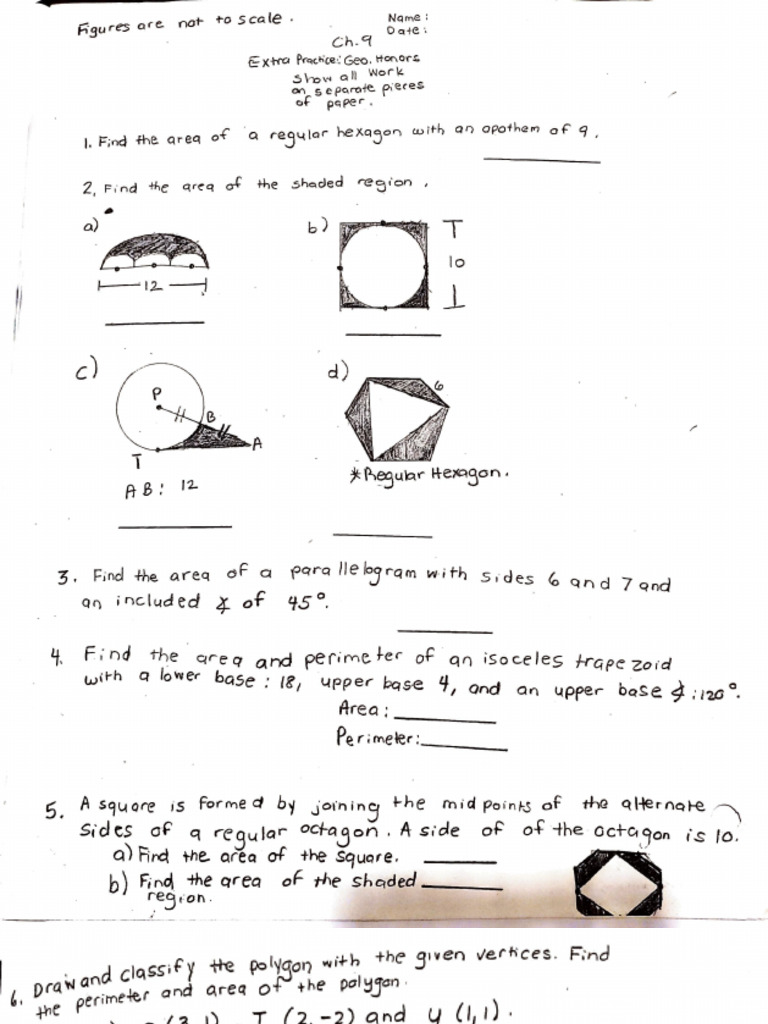 Figures are not to scale.
Name:
Date:
Ch. 9
Extra Practice: Geo. Honors
Show all Work
on separate pieces
of paper.
1. Find the area of a regular hexagon with an apothem of 9.
2. Find the area of the shaded region.
a)
12
b)
10
c)
P
B
A
T
AB: 12
d)
6
*Regular Hexagon.
3. Find the area of a parallelogram with sides 6 and 7 and
an included ∡ of 45°.
4. Find the area and perimeter of an isoceles trapezoid
with a lower base: 18, upper base 4, and an upper base ∡:120°.
Area:
Perimeter:
5. A square is formed by joining the midpoints of the alternate
sides of a regular octagon. A side of of the octagon is 10.
a) Find the area of the square.
b) Find the area of the shaded
region.
6. Draw and classify the polygon with the given vertices. Find
the perimeter and area of the polygon.
(3,1), T (2,-2) and U (1,1).